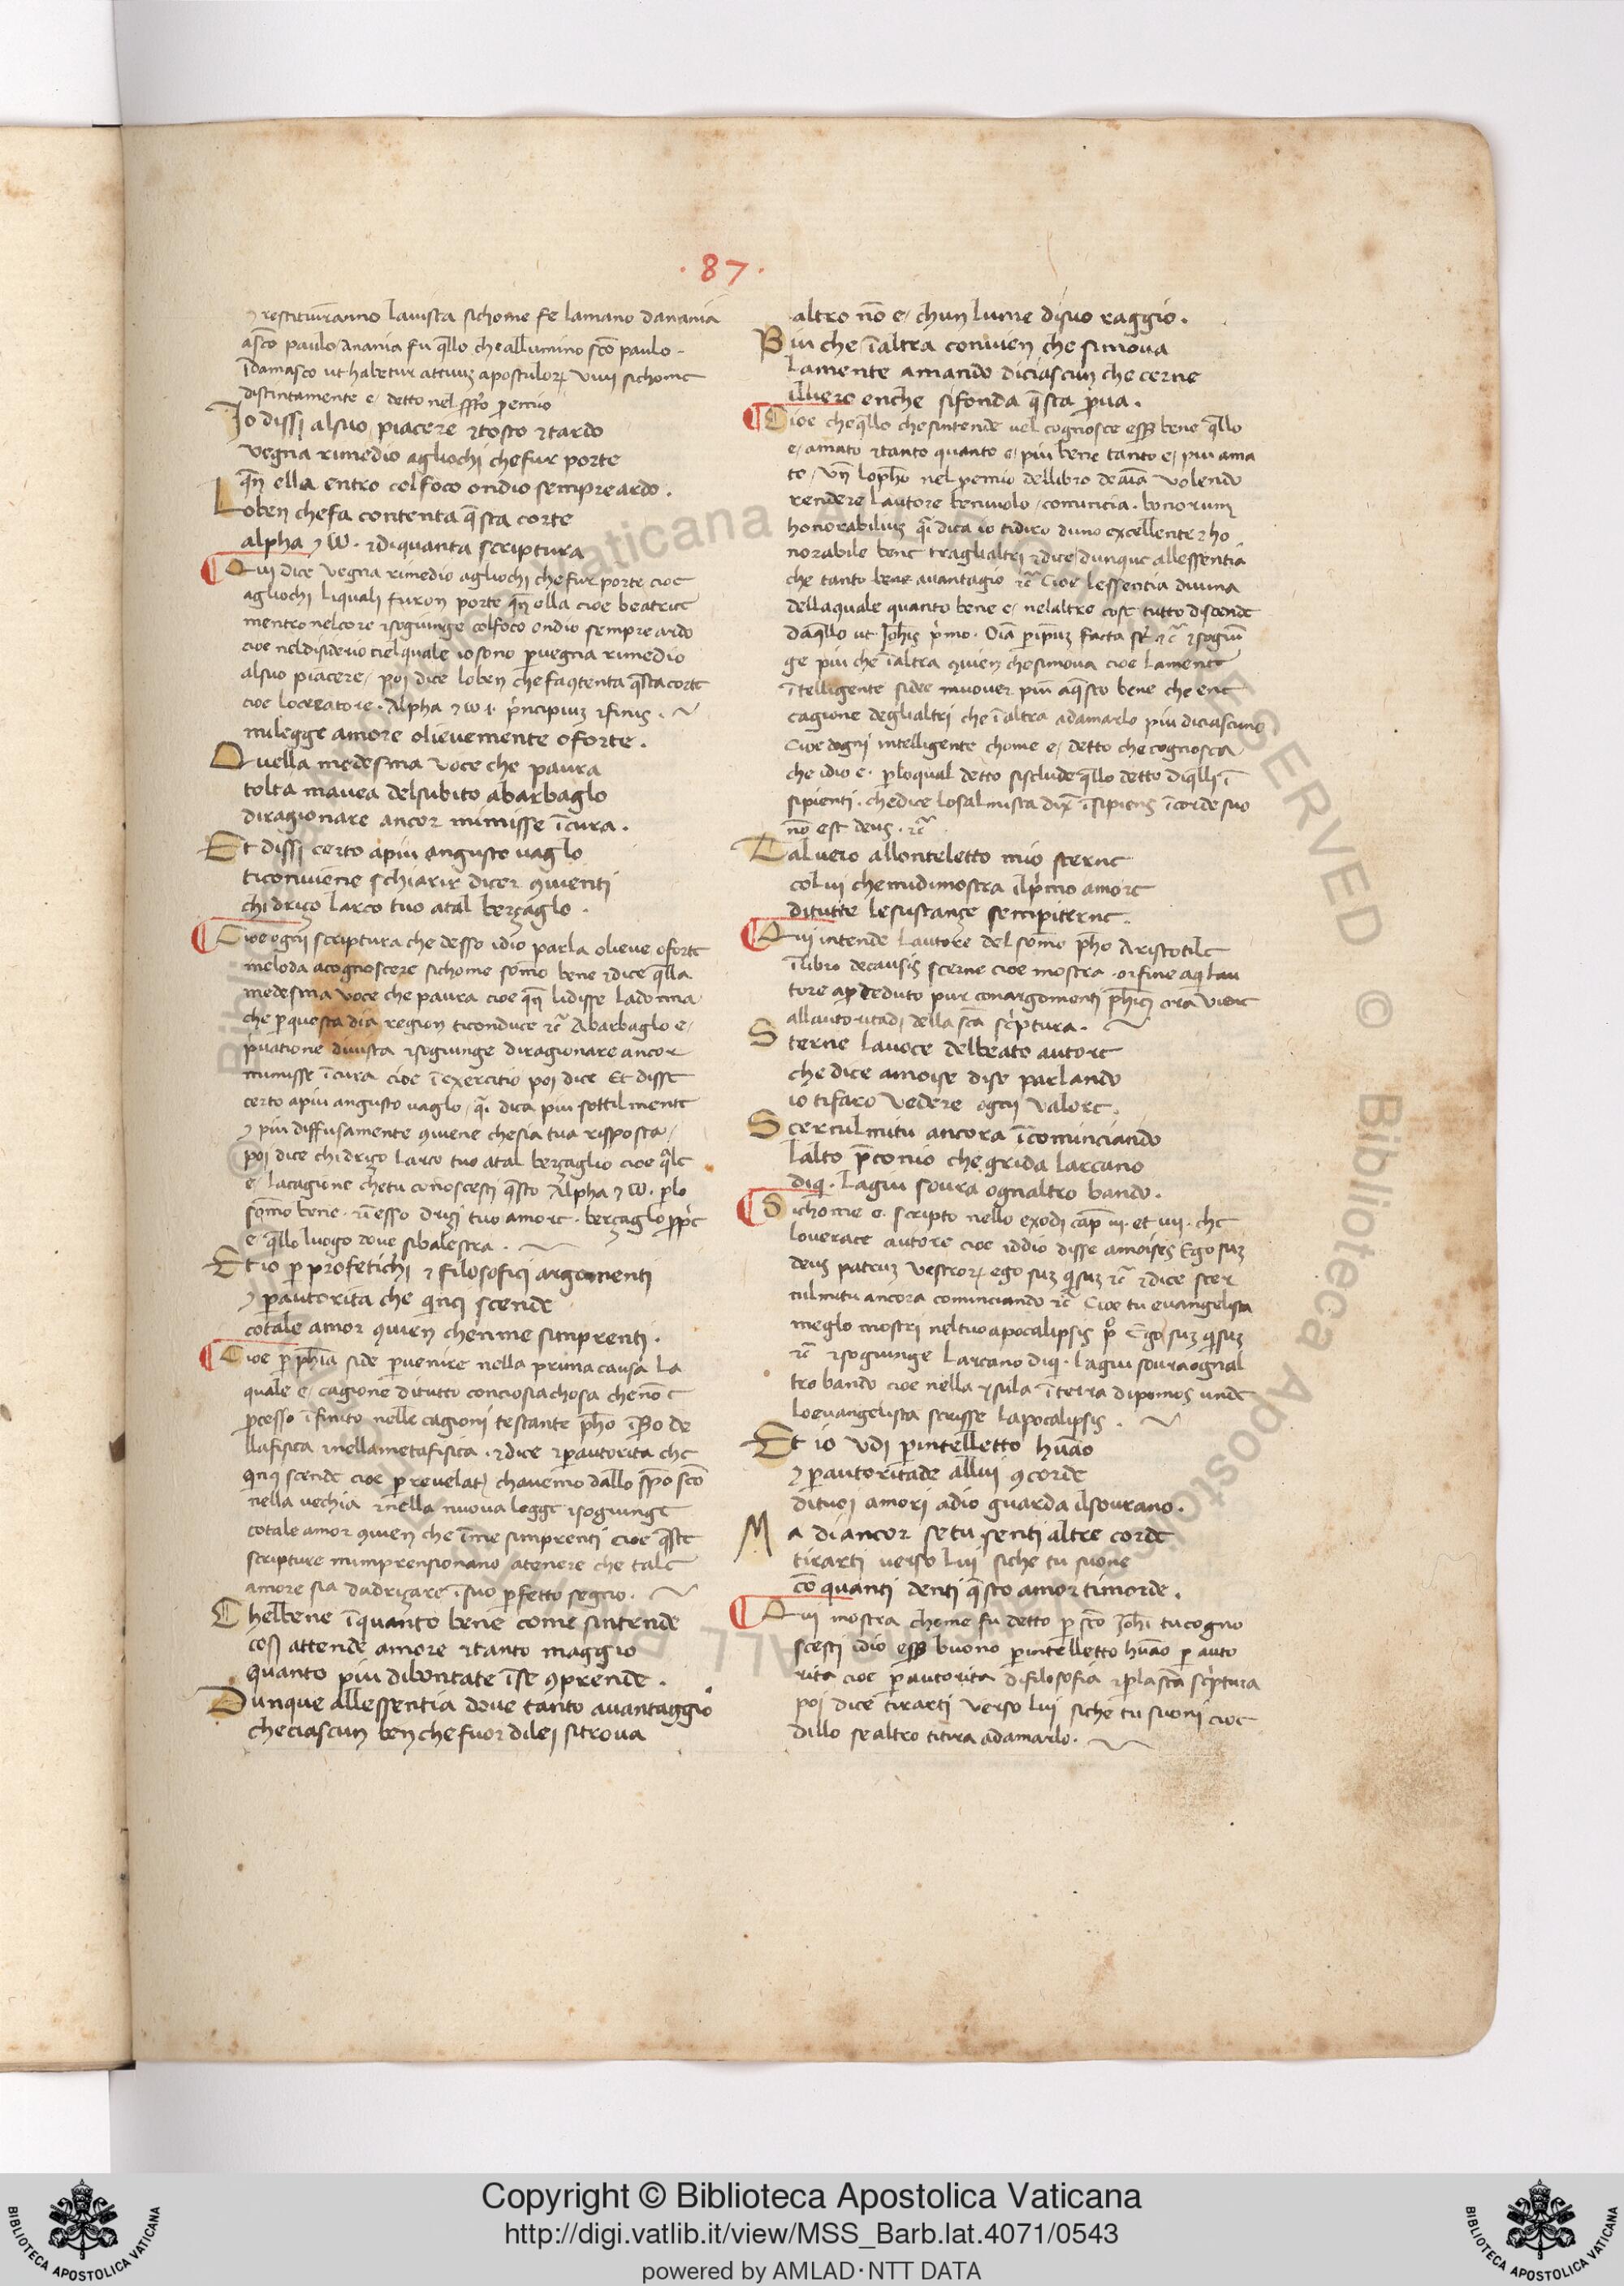 · 87 ·
⁊ restituirāno lavista sichome fe lamano danania
asc̄o paulo Anania fu q̄llo che allumino sc̄o paulo ·
ī damasco ut habetur attuuȝ apostuloꝝ viiij sichome
distintamente e/ detto nel proēmio
Io dissi alsuo piacere ⁊tosto ⁊tardo
vegna rimedio agliochi chefur porte
q̄n ella entro colfoco ondio sempreardo ·
Loben chefa contenta q̄sta corte
alpha ⁊ ω · ⁊diquanta scriptura
Qui dice vegna rimedio agliochi chefur porte cioe
agliochi liquali furon porte q̄n ella cioe beatrice
mentro nelcore ⁊sogiunge colfoco ondio sempre ardo
cioe neldisiderio nelquale io sono p̄ vegna rimedio
alsuo piacere/ poi dice loben che fa ꝯtenta q̄sta corte
cioe locreatore · Alpha ⁊ ω ·i· p̄ncipiuȝ ⁊finis ·
milegge amore olievemente oforte ·
Quella medesma voce che paura
tolta mavea delsubito abarbaglo
diragionare ancor mimisse īcura ·
Et dissi certo apiu angusto vaglo
ticonviene schiarir dicer ꝯvienti
chi drizo larco tuo atal berzaglo ·
Cioe ogni scriptura che desso idio parla olieve oforte
meloda acognoscere sichome som̄o bene ⁊dice q̄lla
medesma voce che paura cioe q̄n lidisse ladonna
che p̄ questa dia region ticonduce ⁊c̄ Abarbaglo e/
p̄vatione divista ⁊sogiunge diragionare ancor
mimisse īcura cioe ī exercitio poi dice Et disse
certo apiu angusto vaglo/ q̄i dica piu sottilmente
⁊ piu diffusamente ꝯviene chesia tua risposta/
poi dice chi drizo larco tuo atal berzaglio cioe q̄le
e/ lacagione chetu conoscesti q̄sto Alpha ⁊ ω · p̄ lo
som̄o bene · ⁊ī esso drizi tuo amore · berzaglo p̄p̄e
e/ q̄llo luogo dove sibalestra ·
Et io p̄ profetichi ⁊ filosofici argomenti
⁊ p̄autorita che quici scende
cotale amor ꝯvien chenme simprenti ·
Cioe p̄ ph̄ia side p̄venire nella prima causa la
quale e/ cagione ditutto conciosiachosa chenō e
p̄cesso īfinito nelle cagioni testante ph̄o
llafisica ⁊nellametafisica · ⁊dice ⁊p̄autorita che
quici scende cioe p̄ revelat chavemo dallo sp̄o sc̄o
nella vechia ⁊nella nuova legge ⁊sogiunge
cotale amor ꝯvien che īme simprenti cioe q̄ste
scripture mimprensionano atenere che tale
amore sia dadrizare ī suo p̄fetto segno ·
Chelbene īquanto bene come sintende
cosi attende amore ⁊tanto maggio
quanto piu dibontate īse ꝯprende ·
Dunque allessentia dove tanto avantaggio
checiascun ben che fuor dilei sitrova
altro nō e/ chun lume disuo raggio ·
Piu che ī altra convien che simova
Lamente amando diciascun che cerne
ilvero enche sifonda q̄sta p̄va ·
Cioe cheq̄llo chesintende vel cognosce ess̄ bene q̄llo
e/ amato ⁊tanto quanto e/ piu bene tanto e/ piu ama
to/ Vn̄ loph̄o nel p̄emio dellibro deaīa volendo
rendere lautore benivolo/ comincia · bonorum
honorabiliuȝ q̄i dica io tidiro duno excellente ⁊ho
norabile bene traglialtri ⁊dice/ dunque allessentia
che tanto bene avantagio ⁊c̄ Cioe lessentia divina
dellaquale quanto bene e/ nelaltre cose tutto discende
daq̄llo ut Joh̄is p̄mo · Oīa p̄ ip̄uȝ facta st̄ ⁊c̄ ⁊sogiun
ge piu che ī altra ꝯvien chesimova cioe lamente
ītelligente sidee muover piu aq̄sto bene che ene
cagione deglialtri che ī altra adamarlo piu diciascuno
Cioe dogni intelligente chome e/ detto che cognosca
che idio e · p̄loqual detto sisclude q̄llo detto diq̄lli ī
sipienti · chedice losalmista dix̄ īsipiens īcorde suo
nō est deus · ⁊c̄
Tal vero allonteletto mio sterne
colui chemidimostra ilp̄mo amore
ditutte lesustanze sempiterne ·
Qui intende lautore del som̄o ph̄o Aristotile
ī libro decausis scerne cioe mostra · orfine aq̄ lau
tore ap deduto pur conargomenti ph̄ici ora viene
allautoritadi della sc̄a sc̄ptura ·
Sterne lavoce delbeato autore
che dice amoise dise parlando
io tifaro vedere ogni valore ·
Scerculmitu ancora īcominciando
lalto p̄conio chegrida larcano
diq̄ · lagiu soura ognaltro bando ·
Sichome e · scripto nello exodi cap̄ iii · et iiii · che
loverace autore cioe iddio disse amoises Ego suȝ
deus patruȝ vestroꝝ ego suȝ q̄ suȝ ⁊c̄ ⁊dice scer
culmitu ancora cominciando ⁊c̄ Cioe tu evangelista
meglo mostri neltuo apocalipsis p̊ Ego suȝ q̄ suȝ
⁊c̄ ⁊sogiunge larcano diq̄ · lagiu soura ognal
tro bando cioe nella ysula ī terra dipomos unde
loevangelista scrisse lapocalipsis ·
Et io vdi p̄intelletto hūao
⁊ p̄autoritade allui ꝯcorde
dituoi amori adio guarda ilsourano ·
Ma di ancor setu senti altre corde
tirarti verso lui siche tu suone
cō quanti denti q̄sto amor timorde ·
Qui mostra chome fu detto p̄ sc̄o Joh̄i tu cogno
scesti idio ess̄ buono p̄intelletto hūao p̄ auto
rita cioe p̄autorita difilosofia ⁊p̄ lasc̄a sc̄ptura
poi dice tirarti verso lui siche tu suoni cioe
dillo se altro titira adamarlo ·
Copyright © Biblioteca Apostolica Vaticana
http://digi.vatlib.it/view/MSS_Barb.lat.4071/0543
powered by AMLAD·NTT DATA
BIBLIOTECA APOSTOLICA VATICANA
BIBLIOTECA APOSTOLICA VATICANA